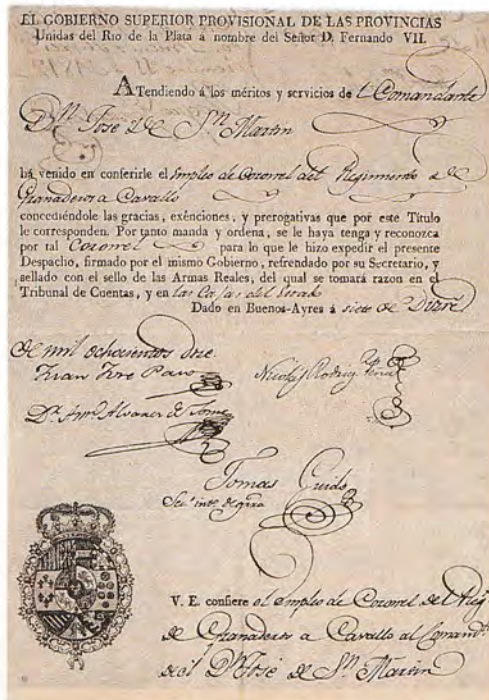 EL GOBIERNO SUPERIOR PROVISIONAL DE LAS PROVINCIAS
Unidas del Rio de la Plata á nombre del Señor D. Fernando VII.
ATendiendo á los méritos y servicios del Comandante
Dn Jose de Sn Martin
há venido en conferirle el empleo de Coronel del Regimiento de
Granaderos a Cavallo
concediéndole las gracias, exênciones, y prerogativas que por este Título
le corresponden. Por tanto manda y ordena, se le haya tenga y reconozca
por tal Coronel para lo que le hizo expedir el presente
Despacho, firmado por el mismo Gobierno, refrendado por su Secretario, y
sellado con el sello de las Armas Reales, del qual se tomará razon en el
Tribunal de Cuentas, y en las Cajas del Estado
Dado en Buenos-Ayres á siete de Dizre
de mil ochocientos doze
Juan Jose Paso
Nicolas Rodrig Peña
Dr Anto Alvarez de Jonte
Tomas Guido
Seco into de grra
V. E. confiere el empleo de Coronel del Reg
de Granaderos a Cavallo al Comandte
de el Dn Jose de Sn Martin